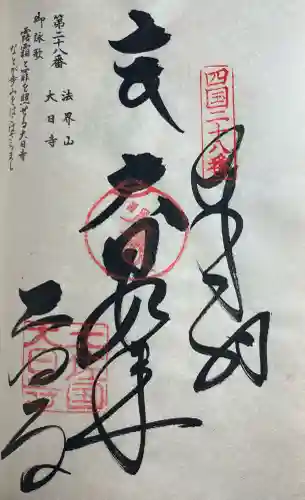 四国二十八番
奉拝
大日如来
大日寺
第二十八番
法界山
大日寺
御詠歌
露霜と罪を照せる大日寺
などか歩みを運ばざらまし